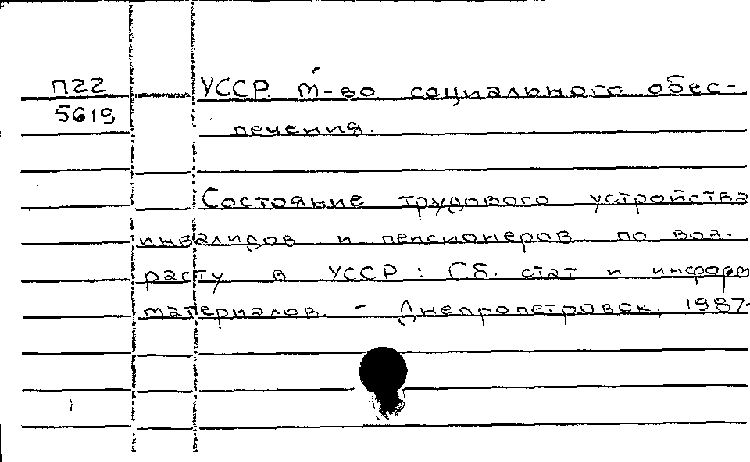 П22 УССР. М-во социального обес-
5619 печения.
Состояние трудового устройства
инвалидов и пенсионеров по воз-
расту в УССР: Сб. стат и информ
материалов. - Днепропетровск, 1987-